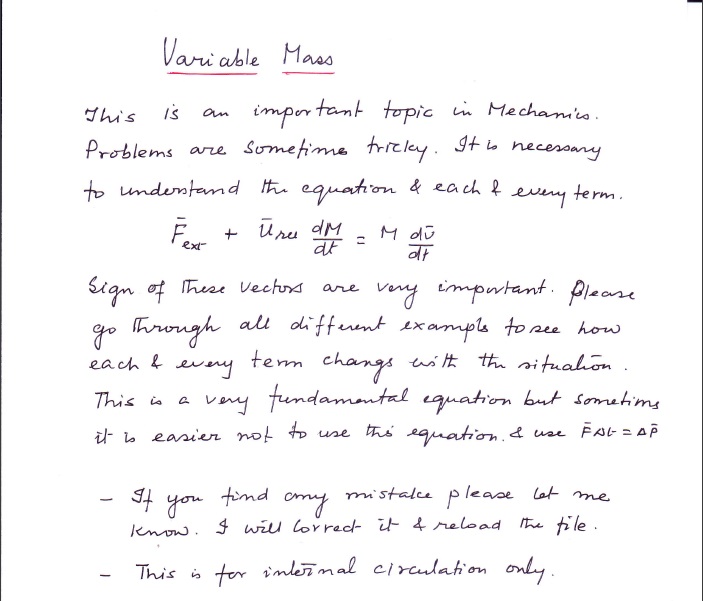 Variable Mass
This is an important topic in Mechanics.
Problems are sometime tricky. It is necessary
to understand the equation & each & every term.
F̄ext + Ūrel dM/dt = M dῡ/dt
Sign of these vectors are very important. Please
go through all different exampls to see how
each & every term changs with the situation.
This is a very fundamental equation but sometims
it is easier not to use this equation. & use F̄Δt = ΔP̄
- If you find any mistake please let me
know. I will correct it & reload the file.
- This is for internal circulation only.